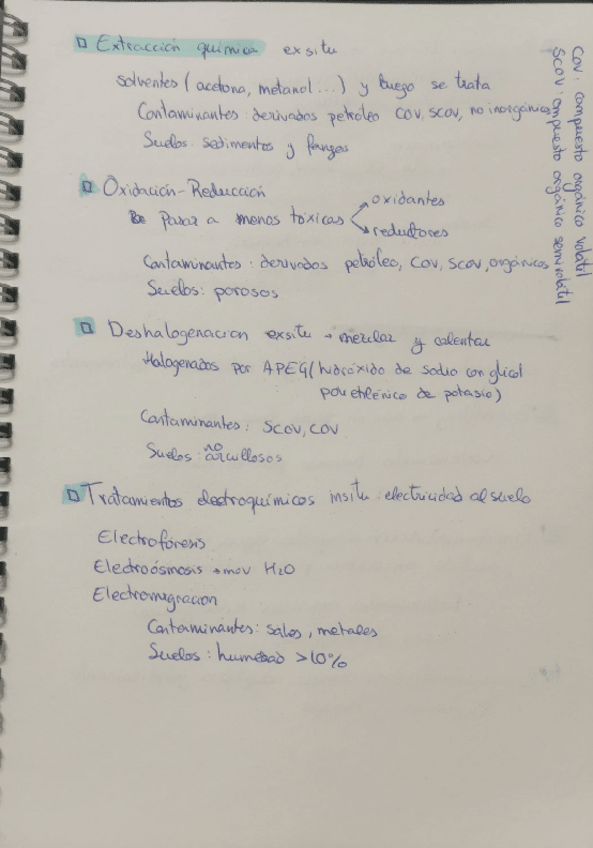 □ Extracción química exsitu
solventes (acetona, metanol...) y luego se trata
Contaminantes: derivados petróleo COV, SCOV, no inorgánicos
Suelos: sedimentos y fangos
□ Oxidación-Reducción
Pasar a menos tóxicas → oxidantes
→ reductores
Contaminantes: derivados petróleo, COV, SCOV, orgánicos
Suelos: porosos
□ Deshalogenación exsitu → mezclar y calentar
Halogenados por APEG (hidróxido de sodio con glicol
polietilénico de potasio)
Contaminantes: SCOV, COV
Suelos: no arcillosos
□ Tratamientos electroquímicos insitu: electricidad al suelo
Electroforesis
Electroósmosis → mov H₂O
Electromigración
Contaminantes: sales, metales
Suelos: humedad >10%
COV: compuesto orgánico volátil
SCOV: compuesto orgánico semivolátil